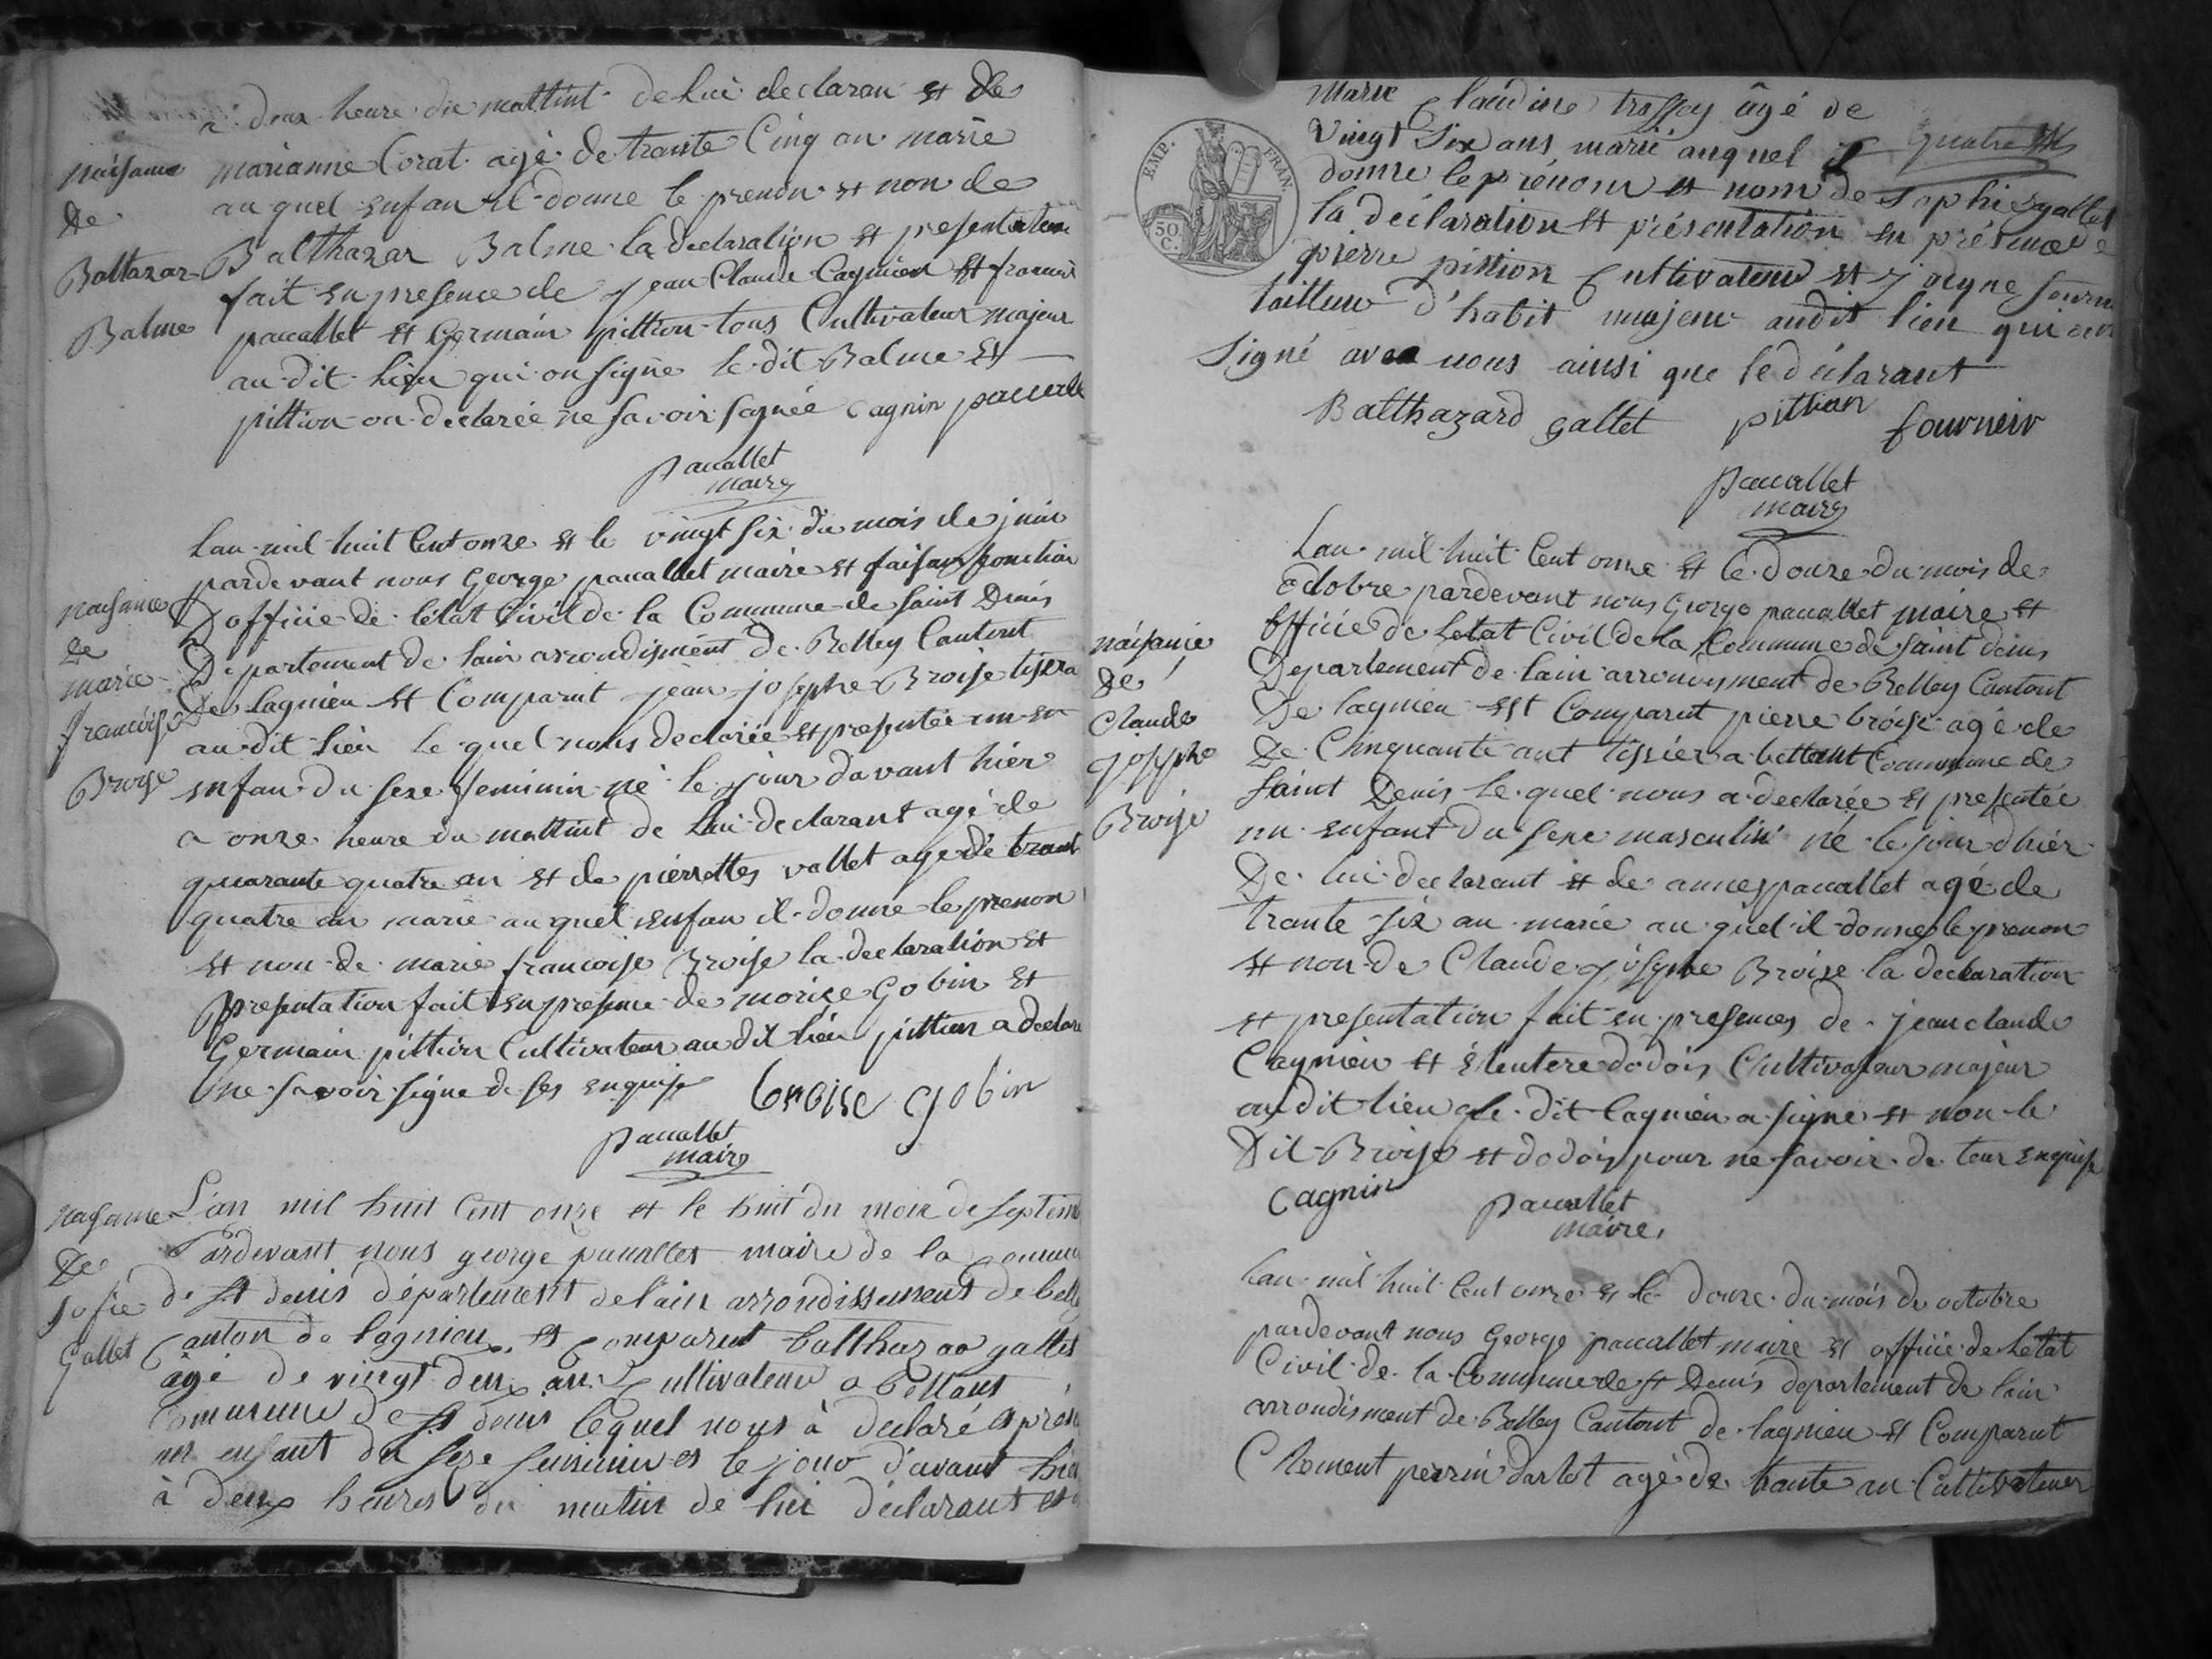 a deux heure du mattint de lui declaran et de
marianne Corat agé de trante Cinq an marie
au quel enfan il donne le prenon et non de
Balthazar Balme la declaration et presentation
fait en presence de jean Claude Cagnieu et francois
paucallet et Germain pittion tous Cultivateur majeur
au dit lieu qui on signe le dit Balme et
pittion on declarée ne savoir signée cagnin
paucallet
maire
naisance
De
Baltazar
Balme
Lan mil huit Cent onze et le vingt six du mois de juin
pardevant nous George paucallet maire et faisan fonction
D officie de létat Civil de la Commune de saint Denis
Departement de lain arrondisment de Belley Cantont
De lagnieu et Comparut jean josephe Broise tisera
au dit lieu le quel nous declarée et presentée un en
enfan du sexe feminin né le jour davant hier
a onze heure du mattint de lui declarant agé de
quarante quatre an et de pierrettes vallet age de trant
quatre an marie au quel enfan il donne le prenon
et non de marie francoise Broise la declaration et
presentation fait en presence de morice Gobin et
Germain pittion Cultivateur au dit lieu pittion a declare
ne savoir signe de ses enquise broise gobin
paucallet
maire
naisance
de
marie
francoise
Broise
L'an mil huit Cent onze et le huit du mois de septem
Pardevant nous george paucallet maire de la commun
de st denis département de l'ain arrondissement de belle
Canton de lagnieu et Comparut balthazar gallet
âgé de vingt deux ans Cultivateur a bettant
Commune de st denis lequel nous à declaré et prés
un enfant du sexe feminin le jour d'avant hier
à deux heures du matin de lui déclarant et
naisance
De
sofie
Gallet
Marie Claudine trossey âgé de
Vingt Six ans marié auquel il
donne le prénom et nom de sophie gallet
la déclaration et présentation en présence de
pierre pittion Cultivateur et
tailleur d'habit majeur audit lieu qui on
Signé avec nous ainsi que le déclarant
Quatre
EMP. FRAN.
50 C.
Balthazard gallet pittion fournier
paucallet
maire
Lan mil huit Cent onze et le douze du mois de
octobre pardevant nous George paucallet maire et
officie de letat Civil de la Commune de saint denis
Departement de lain arrondisment de Belley Cantont
De lagnieu est Comparut pierre broise agé de
De Cinquante ant tissier a bettant Commune de
saint Denis le quel nous a declarée et presentée
un enfant du sexe masculin né le jour dhier
De lui declarant et de anne paucallet agé de
trante six an marie au quel il donne le prenon
et non de Claude josephe Broise la declaration
et presentation fait en presence de jean claude
Cagnieu et éleutere dodois Cultivateur majeur
au dit lieu le dit Cagnieu a signe et non le
Dit Broise et dodois pour ne savoir de leur enquise
cagnin paucallet
maire
naisance
De
Claude
josephe
Broise
Lan mil huit Cent onze et le douze du mois de octobre
pardevant nous George paucallet maire et officie de letat
Civil de la Commune de st Denis departement de lain
arrondisment de Belley Cantont de lagnieu et Comparut
Clement perrin darlot agé de trante an Cultivateur